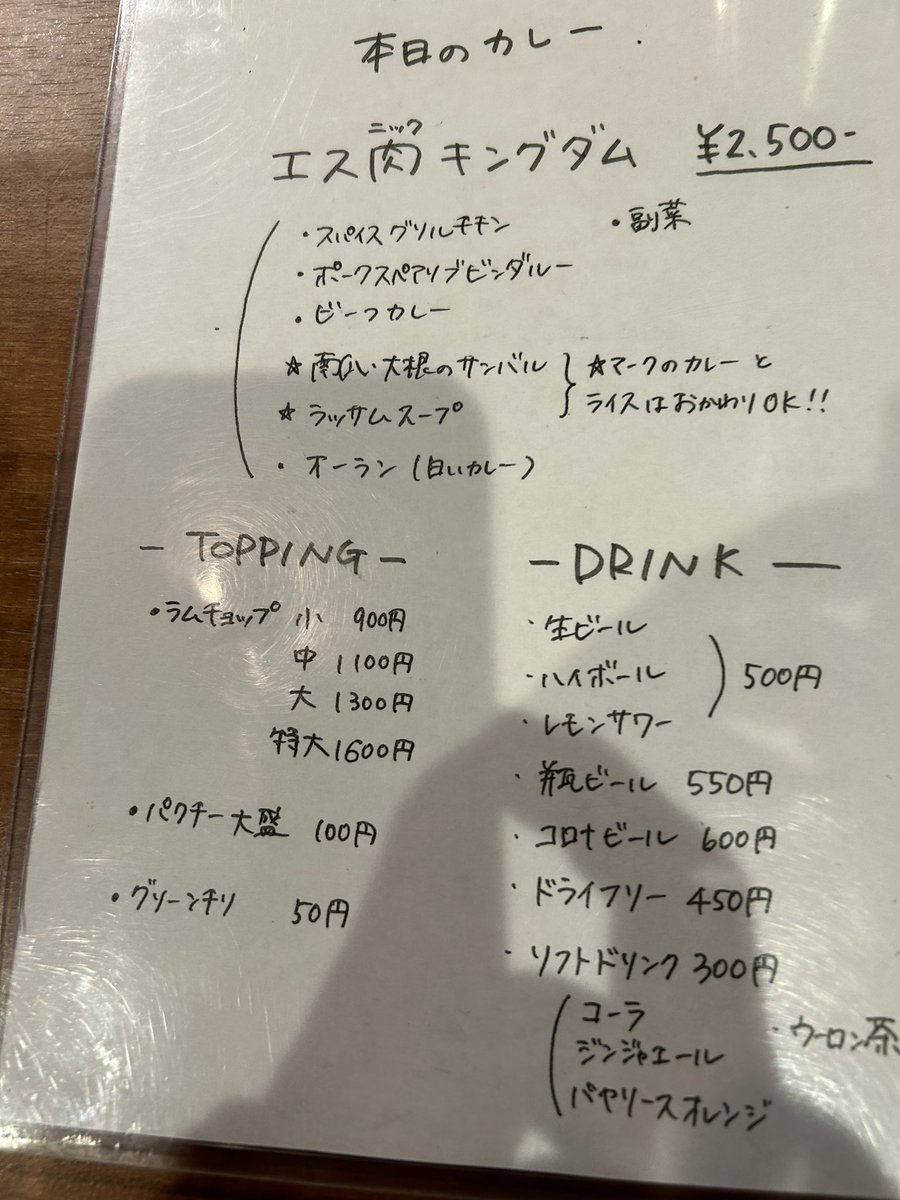 本日のカレー
ニック
エス肉キングダム ¥2,500-
・スパイスグリルチキン ・副菜
・ポークスペアリブビンダルー
・ビーフカレー
☆ 大根のサンバル ☆マークのカレーと
☆ ラッサムスープ ライスはおかわりOK!!
・オーラン(白いカレー)
- TOPPING -
・ラムチョップ 小 900円
中 1100円
大 1300円
特大 1600円
・パクチー大盛 100円
・グリーンチリ 50円
- DRINK -
・生ビール
・ハイボール 500円
・レモンサワー
・瓶ビール 550円
・コロナビール 600円
・ドライフリー 450円
・ソフトドリンク 300円
コーラ ・ウーロン茶
ジンジャエール
バヤリースオレンジ